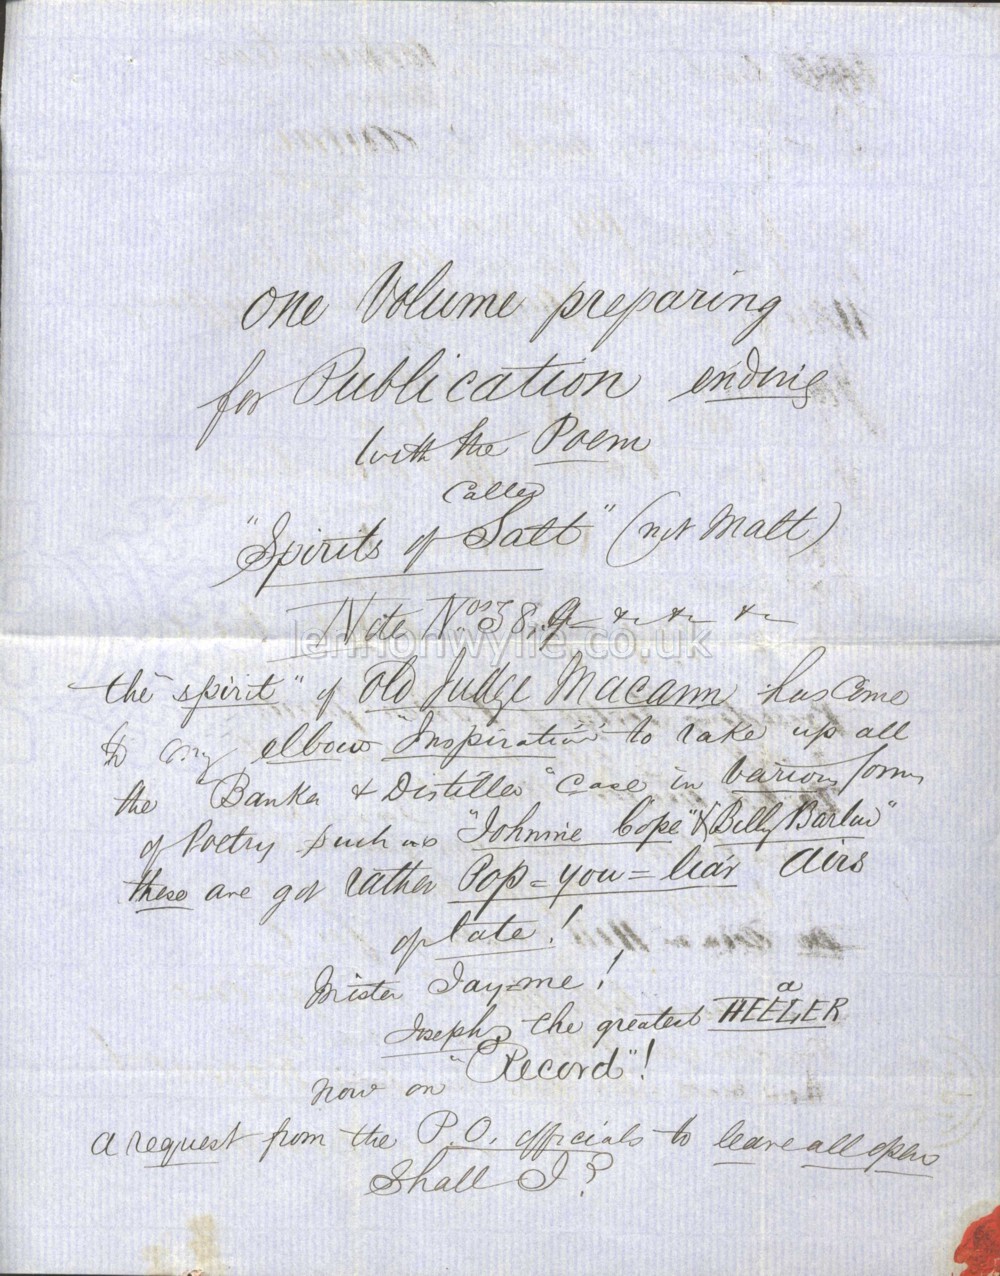 One Volume preparing
for Publication ending
with the Poem
called
"Spirits of Salt" (not Malt)
Note Nos 38, 9 & & &
the "spirit" of Old Judge Macann has come
to my elbow "Inspiration" to rake up all
the "Banker & Distiller" case in various forms
of Poetry such as "Johnnie Cope" & "Billy Barlow"
these are got rather Pop=you=liar airs
of late!
Mister Jay=me!
Joseph, the greatest HEELER
a
now on "Record"!
a request from the P.O. officials to leave all open
Shall I?
lennonwylie.co.uk